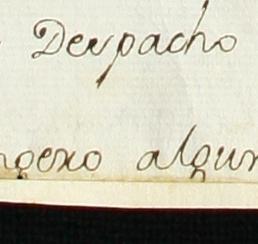 Despacho
ngero algun